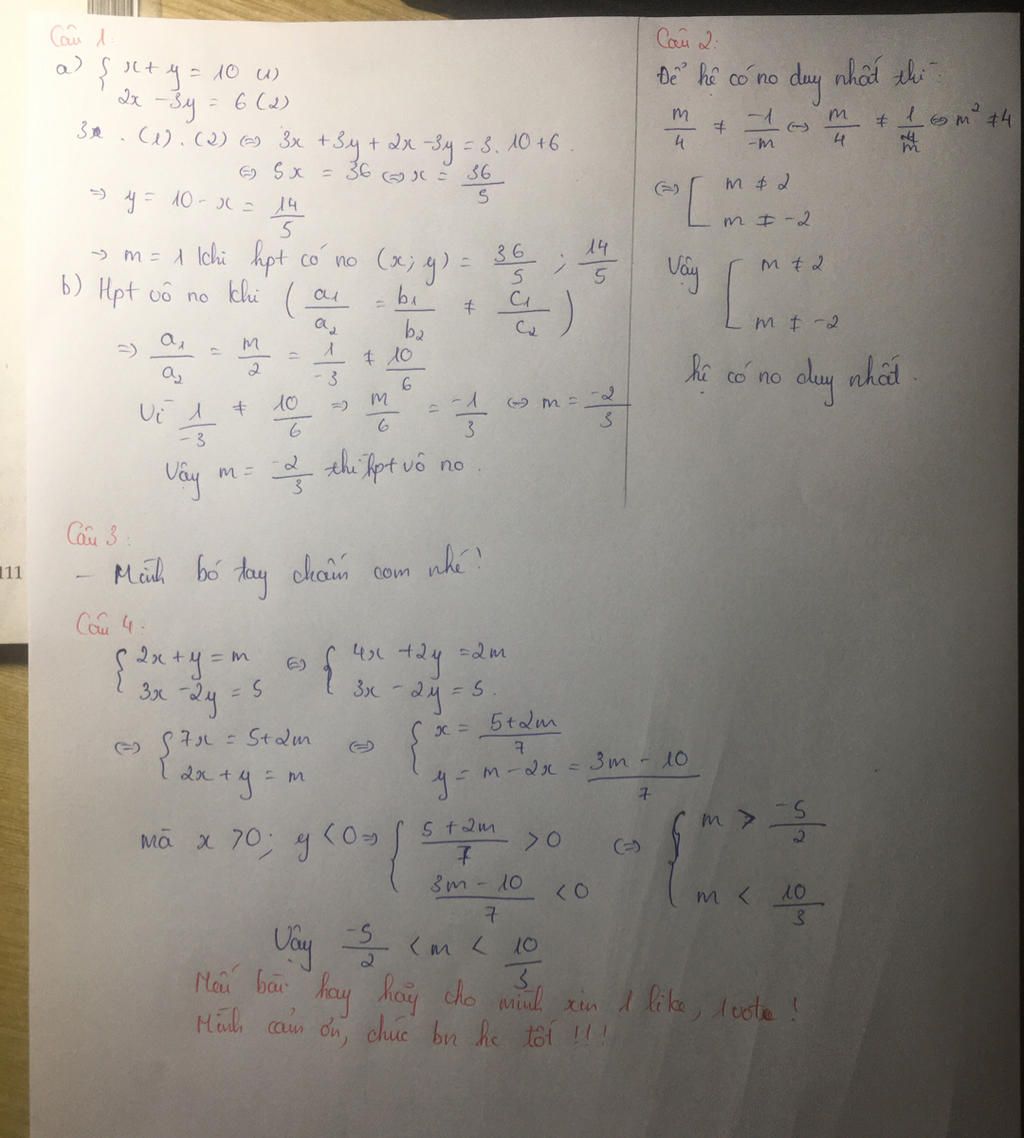 Câu 1:
a) { x + y = 10 (1)
2x - 3y = 6 (2)
3x . (1) . (2) ⇔ 3x + 3y + 2x - 3y = 3. 10 + 6 .
⇔ 5x = 36 ⇔ x = 36/5
⇒ y = 10 - x = 14/5
→ m = 1 khi hpt có no (x; y) = 36/5 ; 14/5
b) Hpt vô no khi ( a1/a2 = b1/b2 ≠ c1/c2 )
⇒ a1/a2 = m/2 = 1/-3 ≠ 10/6
Vì 1/-3 ≠ 10/6 ⇒ m/6 = -1/3 ⇔ m = -2/3
Vậy m = -2/3 thì hpt vô no .
Câu 2:
Để hệ có no duy nhất thì
m/4 ≠ -1/-m ⇔ m/4 ≠ 1/m ⇔ m² ≠ 4
⇔ [ m ≠ 2
m ≠ -2
Vậy [ m ≠ 2
m ≠ -2
hệ có no duy nhất .
Câu 3 :
- Mình bó tay chấm com nhé!
111
Câu 4 :
{ 2x + y = m ⇔ { 4x + 2y = 2m
3x - 2y = 5 3x - 2y = 5 .
⇔ { 7x = 5 + 2m ⇔ { x = 5+2m/7
2x + y = m y = m - 2x = 3m - 10/7
mà x > 0; y < 0 ⇒ { 5 + 2m/7 > 0 ⇔ { m > -5/2
3m - 10/7 < 0 m < 10/3
Vậy -5/2 < m < 10/3
Nếu bài hay hãy cho mình xin 1 like, 1 vote !
Mình cảm ơn, chúc bn hc tốt !!!